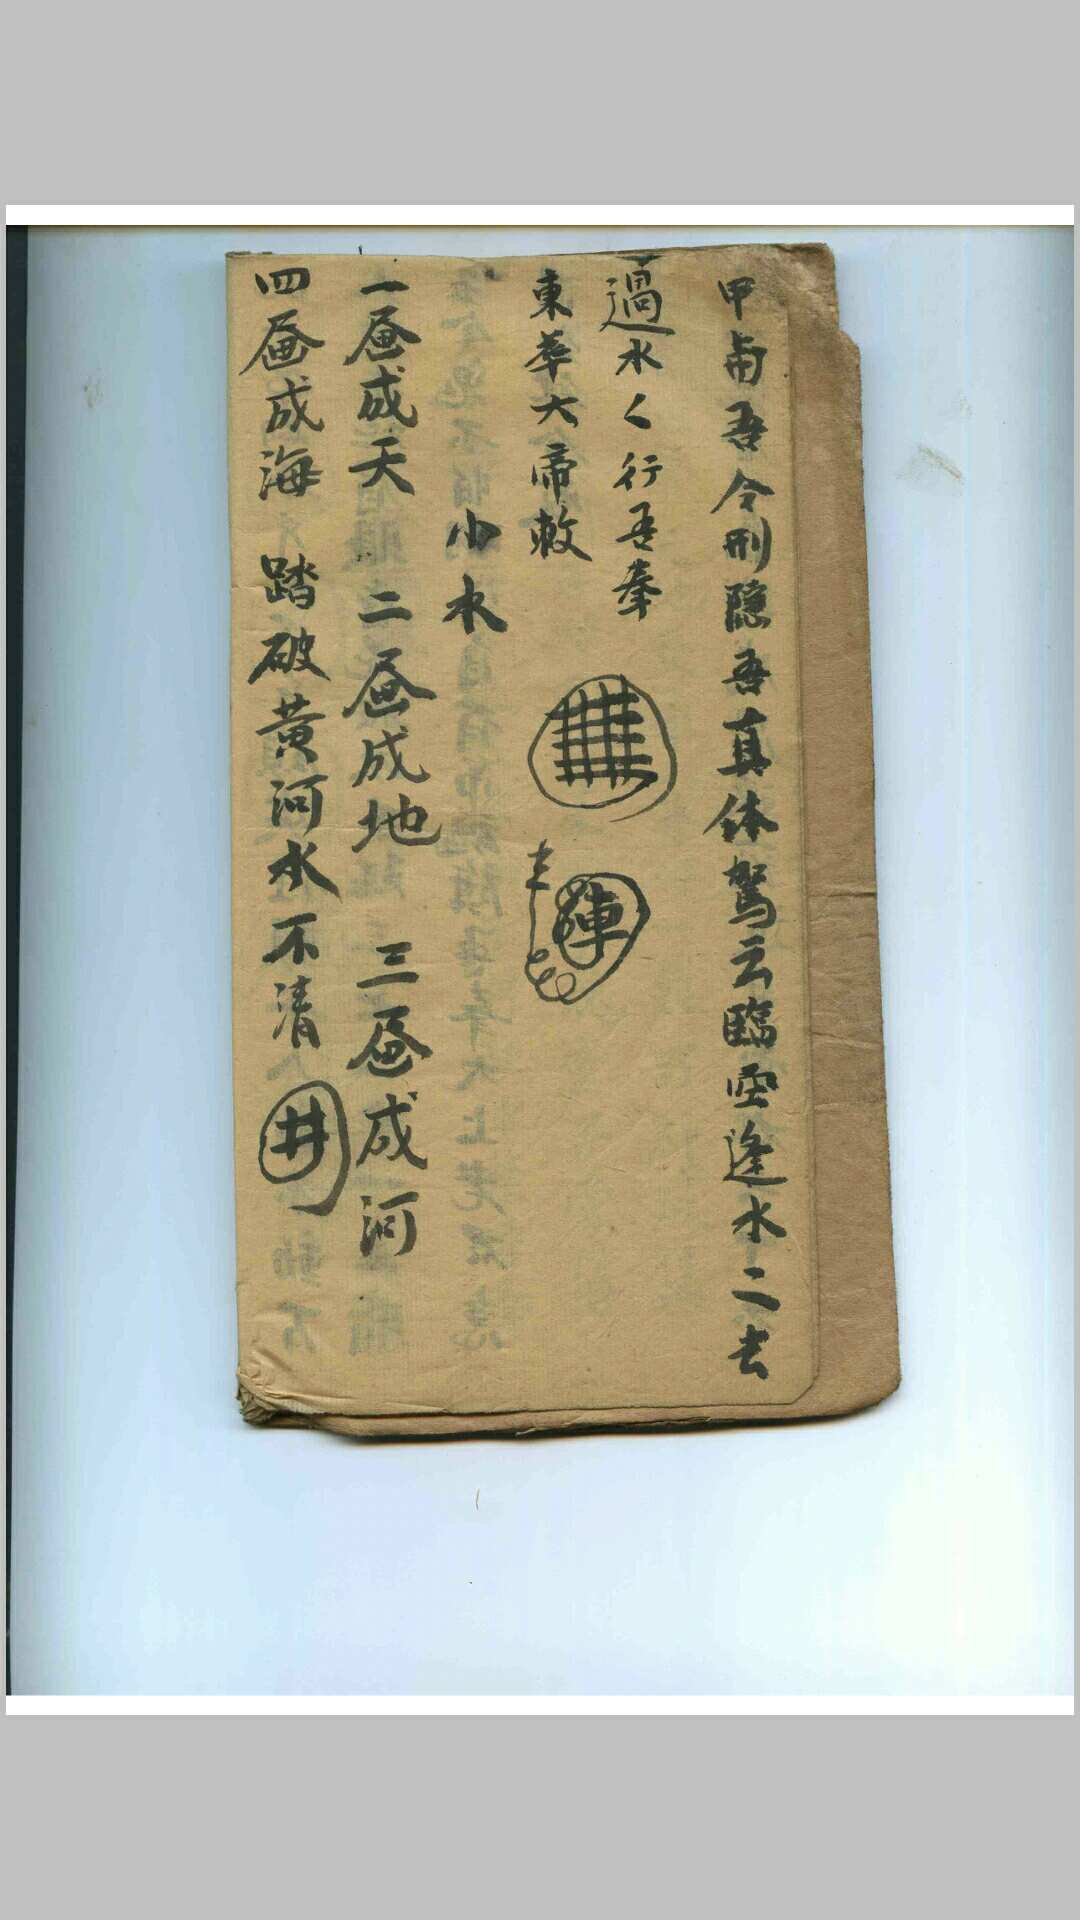 甲吾令刑隐吾真体駕云臨空逢水二去
過水く行吾奉
東華大帝敕
小水
一画成天 二画成地 三画成河
四画成海 踏破黄河水不清 井
車